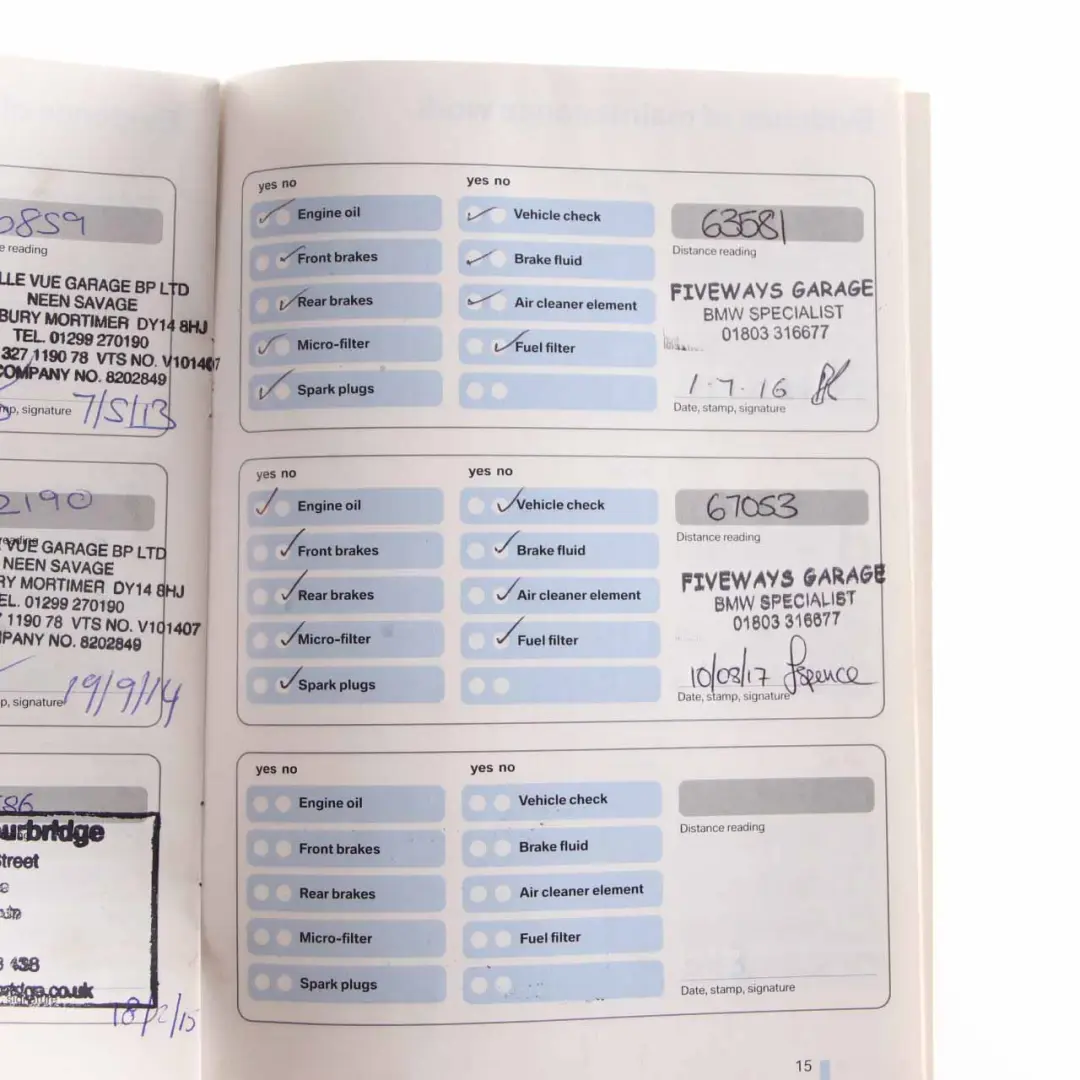 0859
e reading
LLE VUE GARAGE BP LTD
NEEN SAVAGE
BURY MORTIMER DY14 8HJ
TEL. 01299 270190
327 1190 78 VTS NO. V101407
COMPANY NO. 8202849
mp, signature 7/5/13
2190
reading
VUE GARAGE BP LTD
NEEN SAVAGE
RY MORTIMER DY14 8HJ
EL. 01299 270190
1190 78 VTS NO. V101407
PANY NO. 8202849
p, signature 19/9/14
86
ourbridge
Street
438
.co.uk
signature
18/2/15
yes no
yes no
Engine oil
Vehicle check
Front brakes
Brake fluid
Rear brakes
Air cleaner element
Micro-filter
Fuel filter
Spark plugs
63581
Distance reading
FIVEWAYS GARAGE
BMW SPECIALIST
01803 316677
1.7.16
Date, stamp, signature
yes no
yes no
Engine oil
Vehicle check
Front brakes
Brake fluid
Rear brakes
Air cleaner element
Micro-filter
Fuel filter
Spark plugs
67053
Distance reading
FIVEWAYS GARAGE
BMW SPECIALIST
01803 316677
10/03/17
Date, stamp, signature
yes no
yes no
Engine oil
Vehicle check
Front brakes
Brake fluid
Rear brakes
Air cleaner element
Micro-filter
Fuel filter
Spark plugs
Distance reading
Date, stamp, signature
15